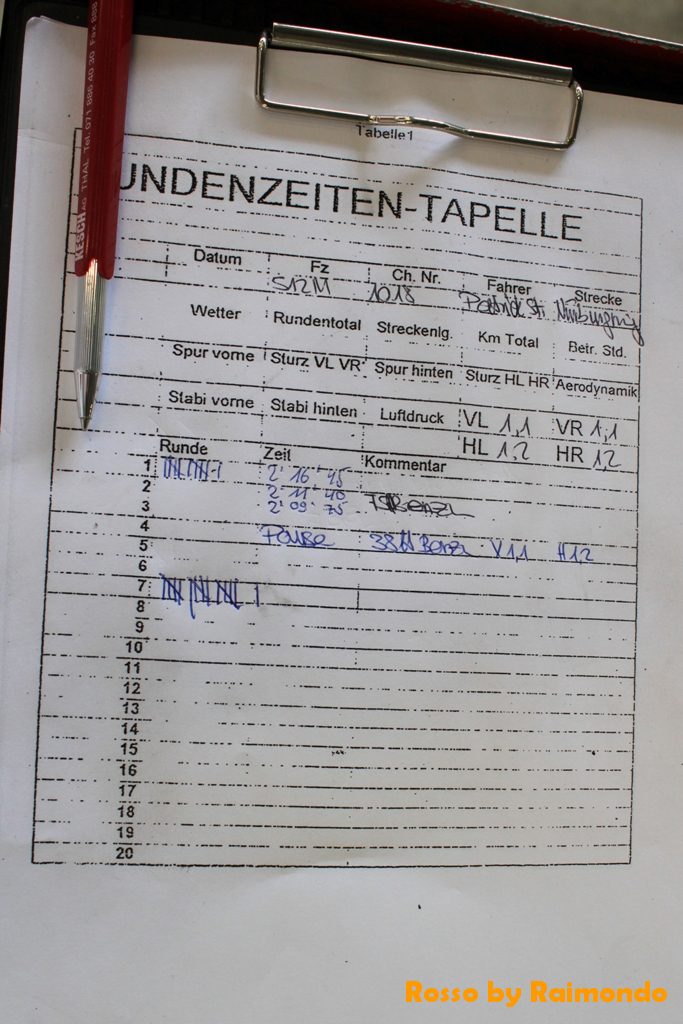 KESCH AG THAL Tel. 071 886 40 30 Fax 888
Tabelle1
UNDENZEITEN-TAPELLE
Datum Fz Ch. Nr. Fahrer Strecke
S12M 1018 Patrick St. Nürburgring
Wetter Rundentotal Streckenlg. Km Total Betr. Std.
Spur vorne Sturz VL VR Spur hinten Sturz HL HR Aerodynamik
Stabi vorne Stabi hinten Luftdruck VL 1,1 VR 1,1
HL 1,2 HR 1,2
Runde Zeit Kommentar
1 2' 16' 45
2 2' 11' 40
3 2' 09' 75
4
5 Pause 38 lt Benzin V 1,1 H 1,2
6
7
8
9
10
11
12
13
14
15
16
17
18
19
20
Rosso by Raimondo